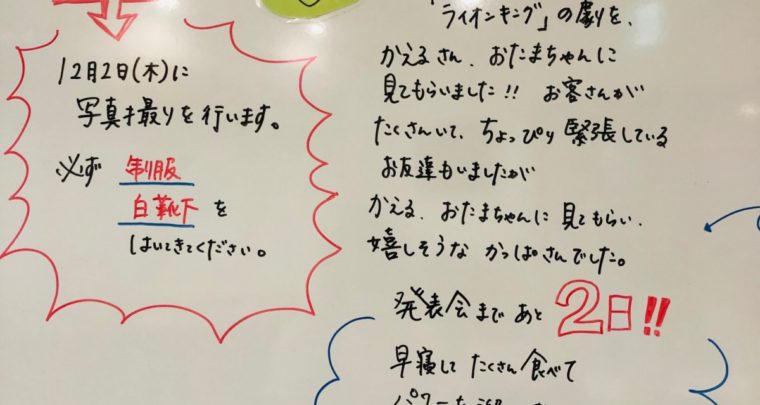 12月2日(木)に
写真撮りを行います。
必ず 制服
白靴下を
はいてきてください。
「ライオンキング」の劇を、
かえるさん、おたまちゃんに
見てもらいました!! お客さんが
たくさんいて、ちょっぴり緊張している
お友達もいましたが
かえる、おたまちゃんに見てもらい、
嬉しそうな かっぱさんでした。
発表会まで あと 2日!!
早寝して たくさん食べて
パワーを